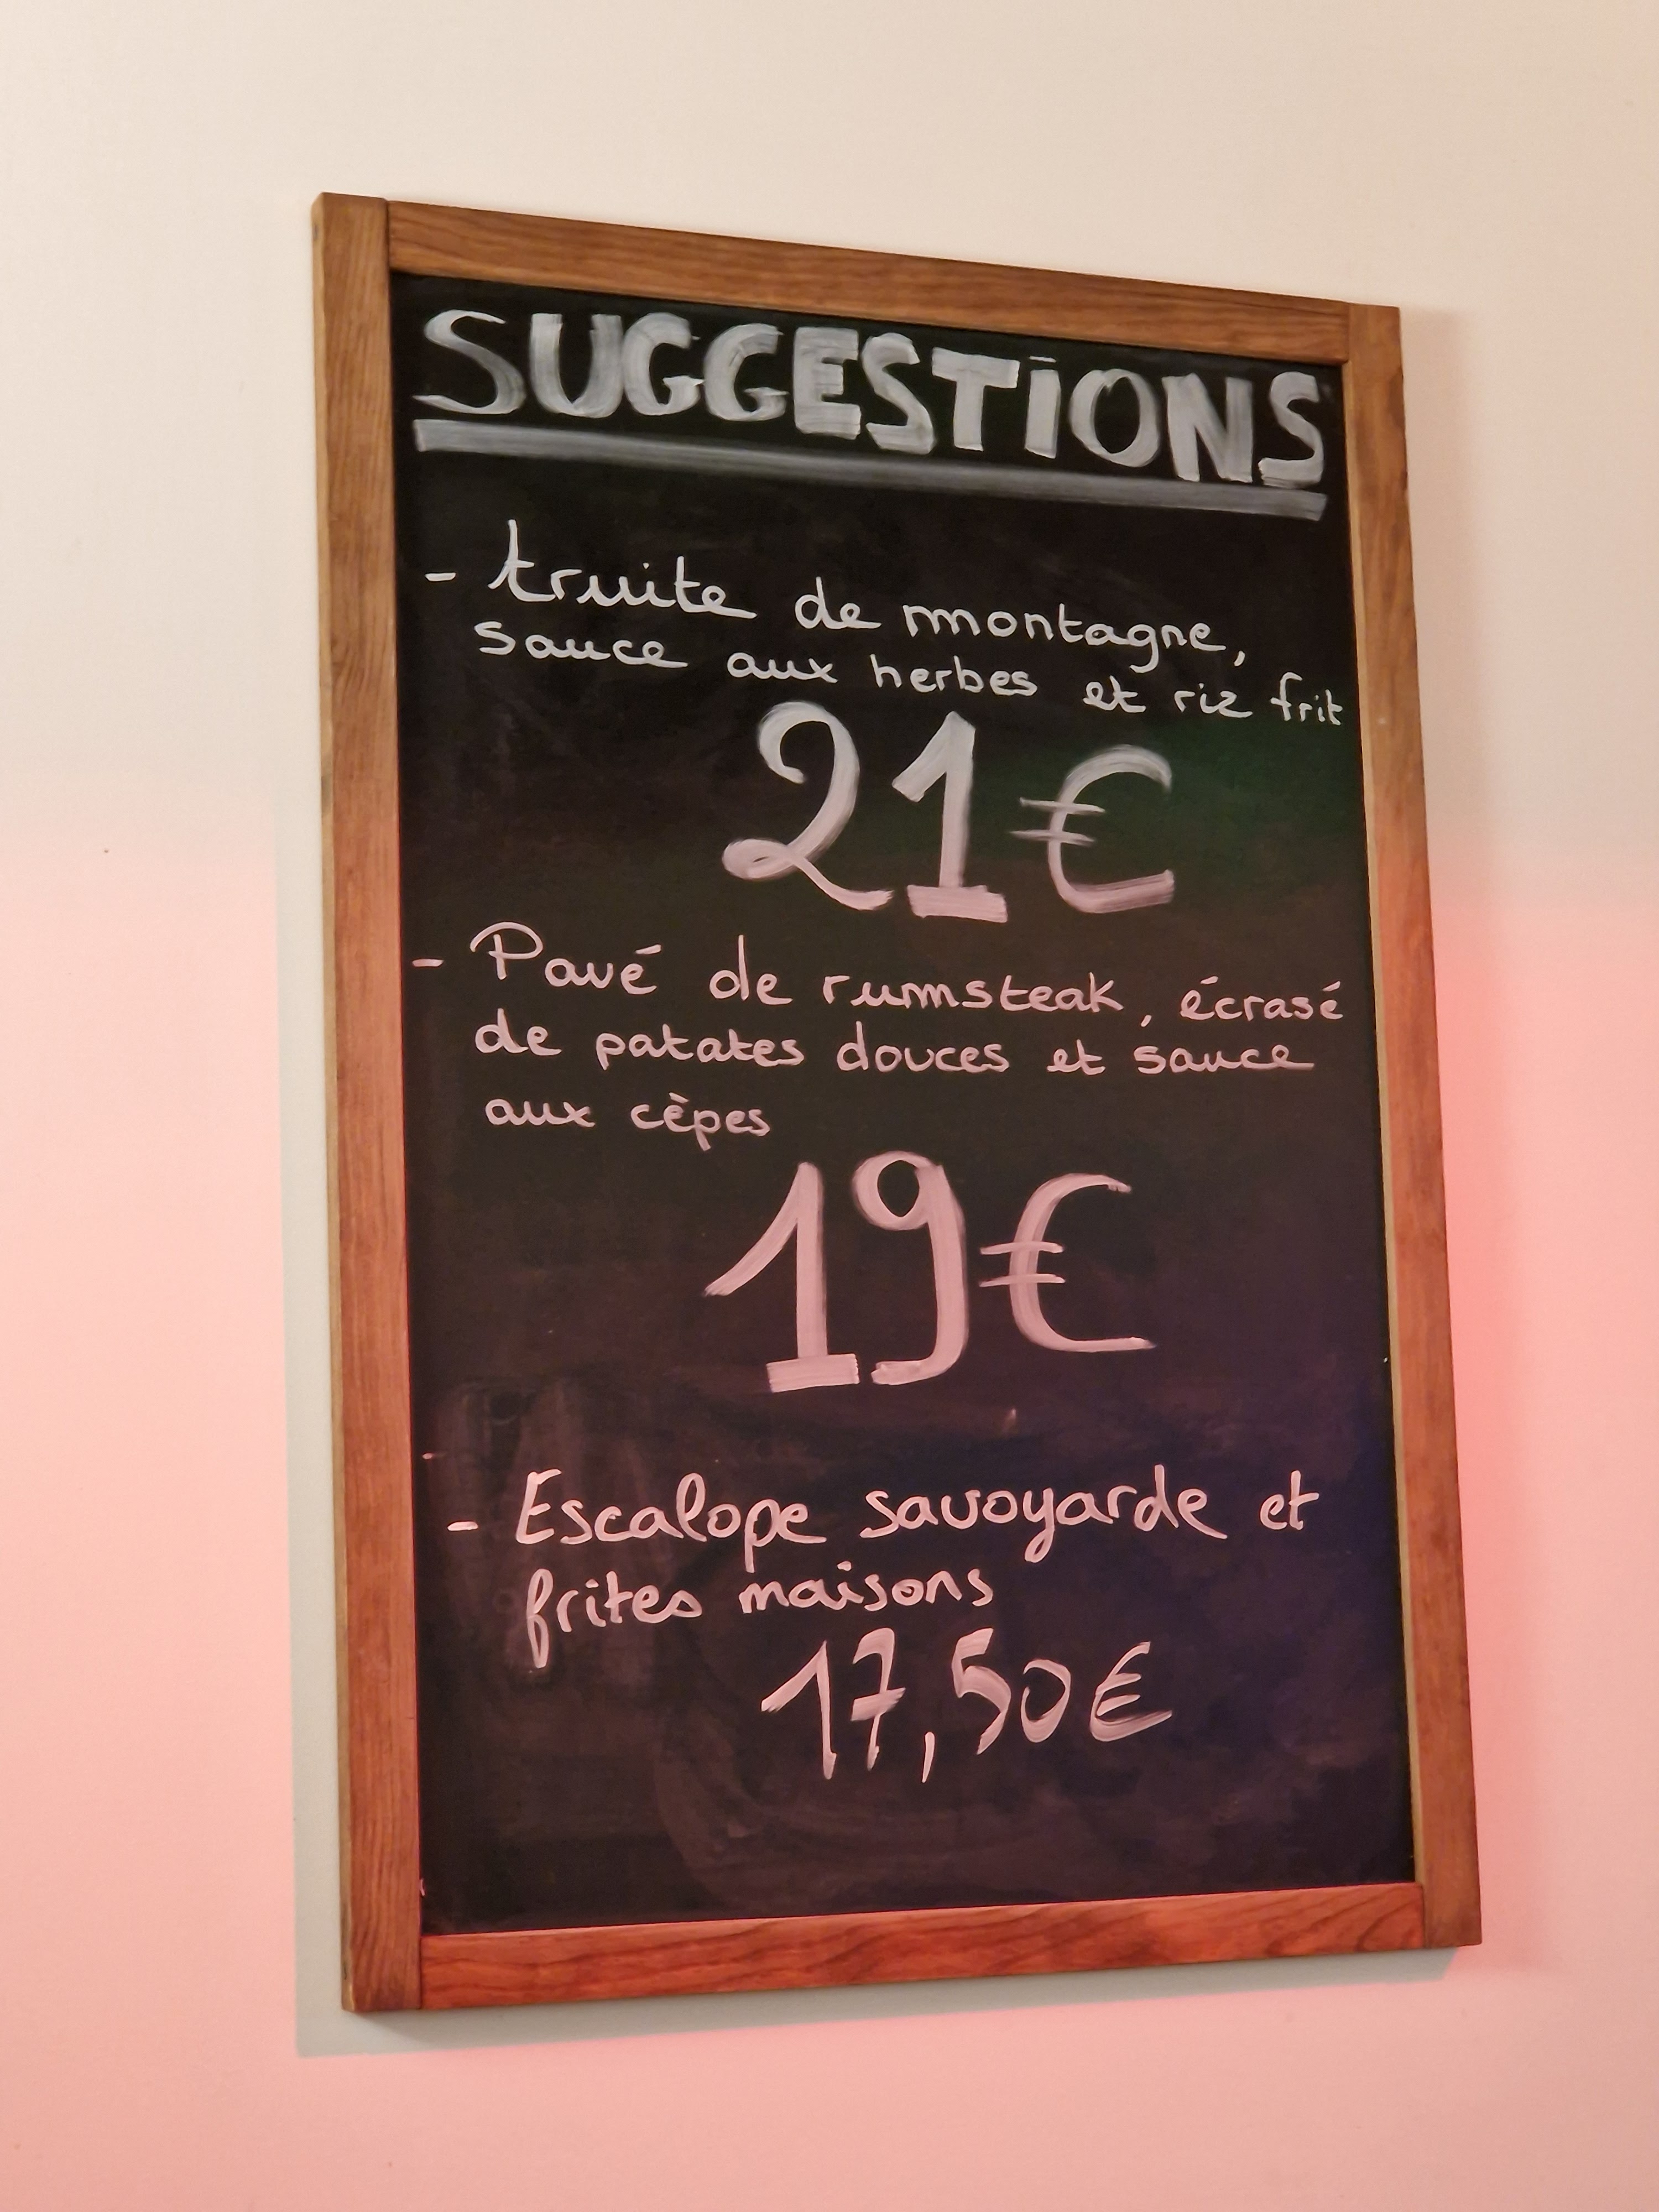 SUGGESTIONS
- truite de montagne,
sauce aux herbes et riz frit
21€
- Pavé de rumsteak, écrasé
de patates douces et sauce
aux cèpes
19€
- Escalope savoyarde et
frites maisons
17,50€